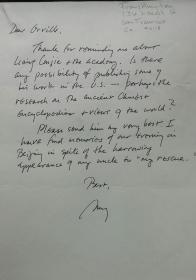 San Francisco
Dear Orville,
Thanks for reminding me about
Liang Congjie & the Academy. Is there
any possibility of publishing some of
his work in the U.S. — perhaps the
research on the ancient Chinese
Encyclopedias & views of the world?
Please send him my very best. I
have fond memories of our evening in
Beijing in spite of the harrowing
appearance of my uncle to "my rescue.
Best,
Amy